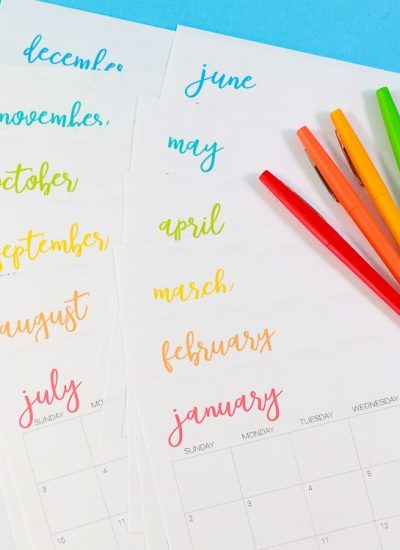 december
november
october
september
august
july
SUNDAY MO
3 4
10 11
june
may
april
march
february
january
SUNDAY MONDAY TUESDAY WEDNESDAY
2 3 4